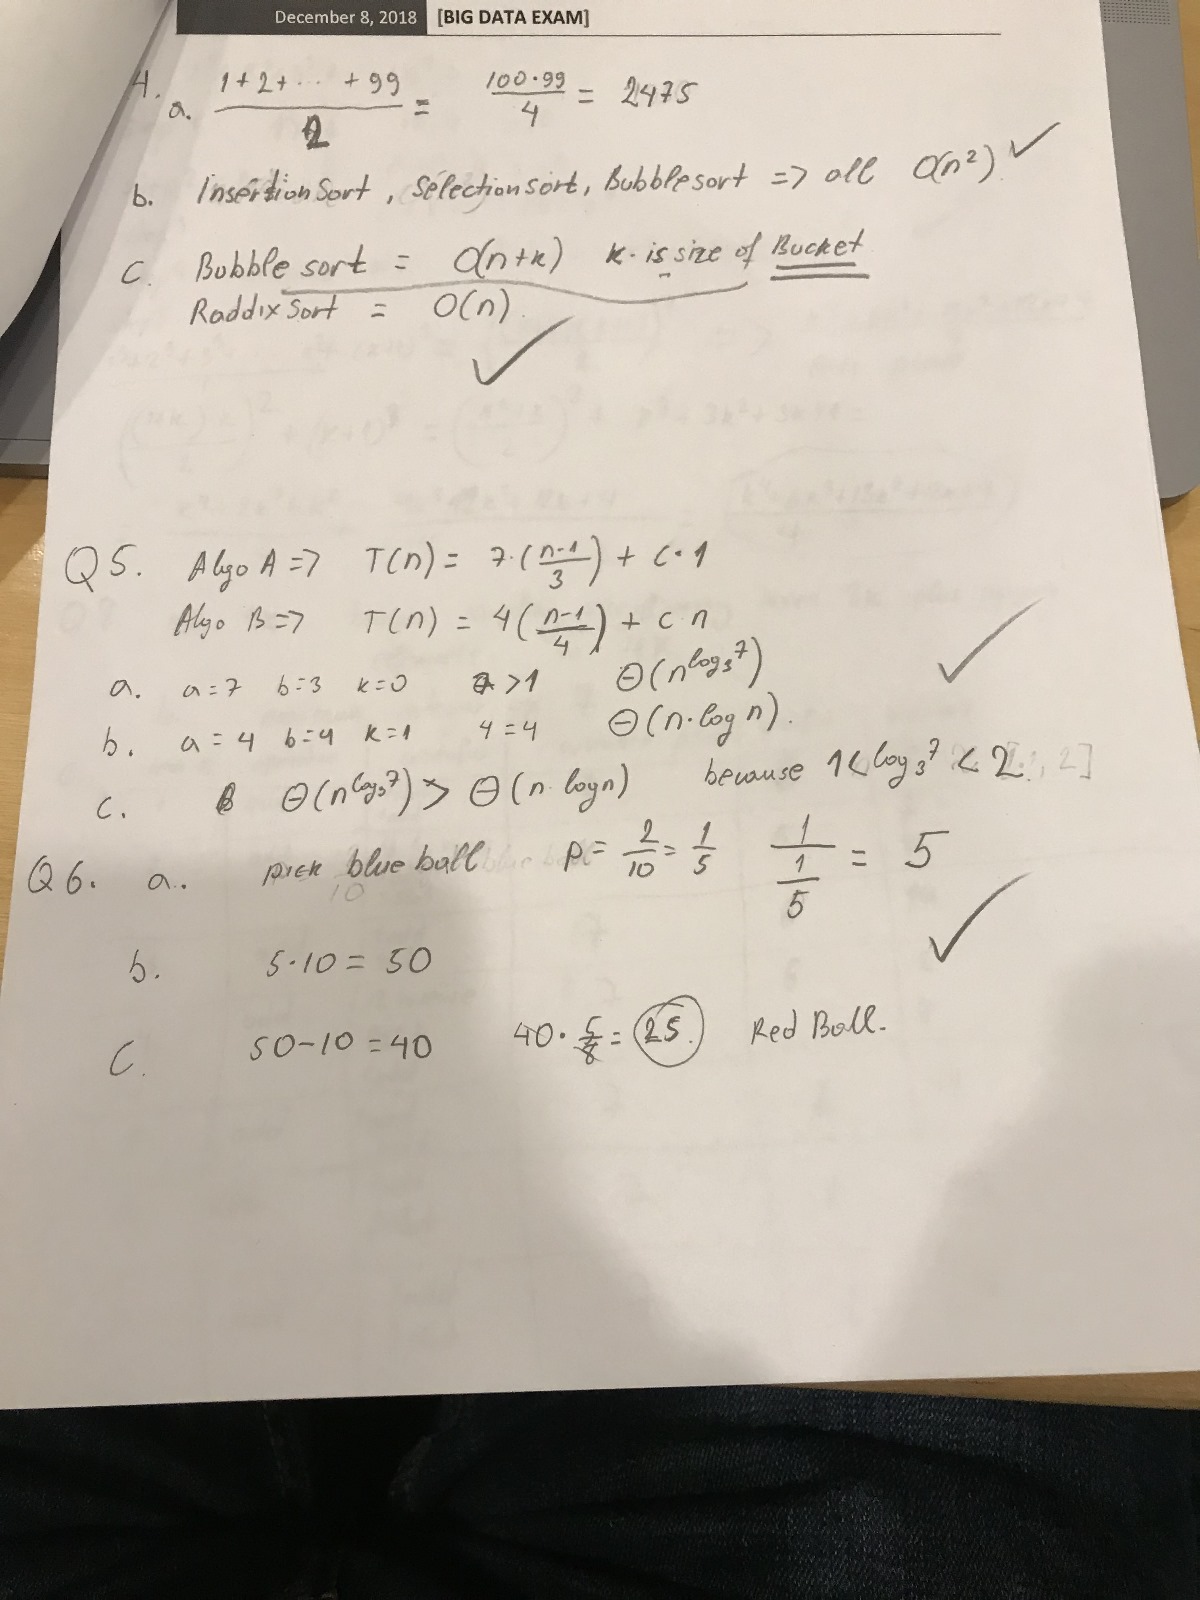 December 8, 2018 [BIG DATA EXAM]
4. a. 1+2+... +99 / 2 = 100·99 / 4 = 2475
b. Insertion Sort, Selection sort, Bubble sort => all O(n²) ✓
c. Bubble sort = O(n+k) k is size of Bucket
Raddix Sort = O(n). ✓
Q5. Algo A => T(n) = 7·(n-1/3) + c·1
Algo B => T(n) = 4(n-1/4) + c n
a. a=7 b=3 k=0 7 >1 Θ(n^log₃7) ✓
b. a=4 b=4 k=1 4=4 Θ(n·log n).
c. Θ(n^log₃7) > Θ(n logn) because 1<log₃7 < 2
Q6. a. pick blue ball p= 2/10 = 1/5 1/(1/5) = 5
b. 5·10 = 50 ✓
C. 50-10 = 40 40·5/8 = 25. Red Ball.